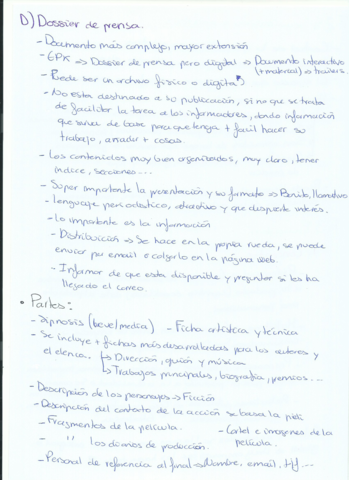 D) Dossier de prensa.
- Documento más complejo, mayor extensión
- EPK => Dossier de prensa pero digital -> Documento interactivo
(+ material) -> trailers.
- Puede ser un archivo físico o digital
- No esta destinado a su publicación, si no que se trata
de facilitar la tarea a los informadores, dando información
que sirva de base para que tenga + facil hacer su
trabajo, añadir + cosas.
- Los contenidos muy bien organizados, muy claro, tener
índice, secciones...
- Super importante la presentación y su formato => Bonito, llamativo
- lenguaje periodístico, atractivo y que despierte interés.
- lo importante es la información
- Distribución => Se hace en la propia rueda, se puede
enviar por email o colgarlo en la página web.
- Informar de que esta disponible y preguntar si les ha
llegado el correo.
• Partes:
- Sipnosis (breve/media) - Ficha artística y técnica
- Se incluye + fichas más desarrolladas para los autores y
el elenco. -> Dirección, guión y música
-> Trabajos principales, biografía, premios...
- Descripción de los personajes -> Ficción
- Descripción del contexto de la acción se basa la peli
- Fragmentos de la película. - Cartel e imágenes de la
película.
- " los diarios de producción.
- Personal de referencia al final -> Nombre, email, tlf...